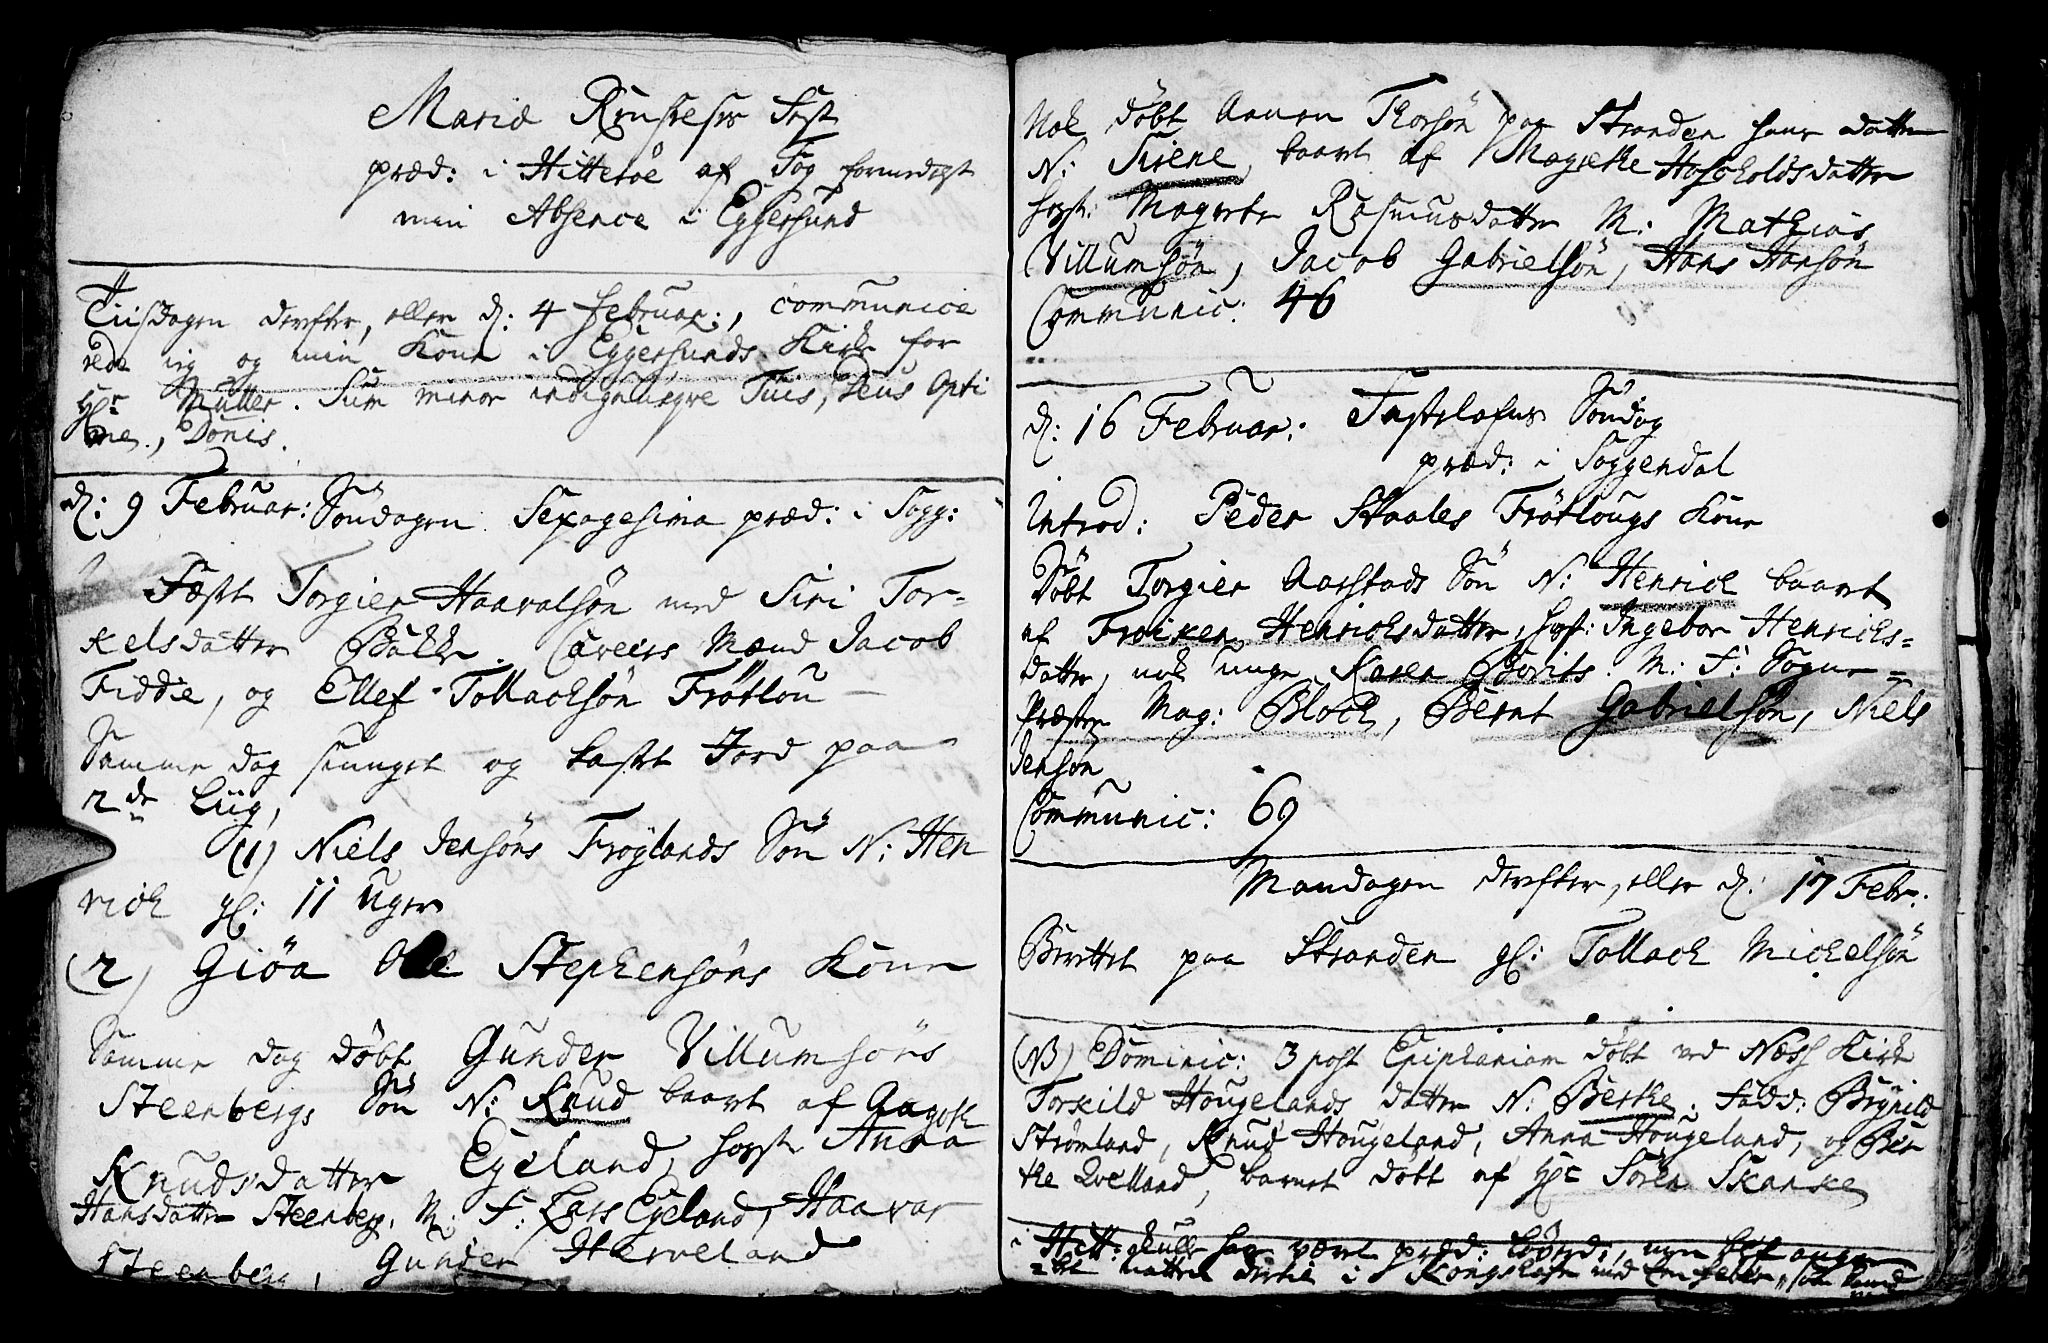 Mariæ Renselses Fest
præd: i Hitterøe af Fog formedelst
min Absence i Eggersund
Tiisdagen derefter, eller d: 4 Februar:, communice
rede ieg og min Kone i Eggersunds Kirke for
Hr Müller. Sum minor indignusqve Tuis, Deus Opti
me, Donis.
d: 9 Februar: Søndagen Sexagesima præd: i Sogg:
Fæst Torgier Haavalsøn med Siri Tor-
kelsdatter Bakke. Caveers Mænd Jacob
Fidde, og Ellef Tollachsøn Frøtlou
Samme dag siunget og kast Jord paa
2de Liig,
(1) Niels Jensøns Frøylands Søn N: Hen
rich gl: 11 Uger
(2) Giøa Ole Stephensøns Kone
Samme dag døbt Gunder Villumsøns
Steenbergs Søn N: Knud baaret af Aagethe
Knudsdatter Egeland, hosst: Anna
Hansdatter Steenberg, M: F: Lars Egeland, Haavar
Steenberg, Gunder Herveland
Nok døbt Aanen Thorsøn paa Stranden hans datter
N: Sirene, baaret af Magrethe Hoskoldsdatter
hosst: Magrete Rasmusdatter M: Mathias
Villumsøn, Jacob Gabrielsøn, Hans Hansøn
Communic: 46
d: 16 Februar: Fastelafvns Søndag
præd: i Soggendal
Introd: Peder Staales Frøtlougs Kone
Døbt Torgier Aarstads Søn N: Henrich baaret
af Froiken Henrichsdatter, hosst: Ingebor Henrichs-
datter, nok unge Karen Giorits. M: F: Sogne-
Præsten Mag: Bloch, Bernt Gabrielsøn, Niels
Jensøn
Communic: 69
Mandagen derefter, eller d: 17 Febr:
Berettet paa Stranden gl: Tollach Michelsøn
(NB) Dominic: 3 post Epiphaniam døbt ved Næss Kirke
Torkild Hougelands datter N: Berthe. Fadd: Brynild
Strømland, Knud Hougeland, Anna Hougeland, og Ber
the Qvelland, barnet døbt af Hr Søren Skanke
i Hitt: skulle have været præd: Løverd:, men blef ingen